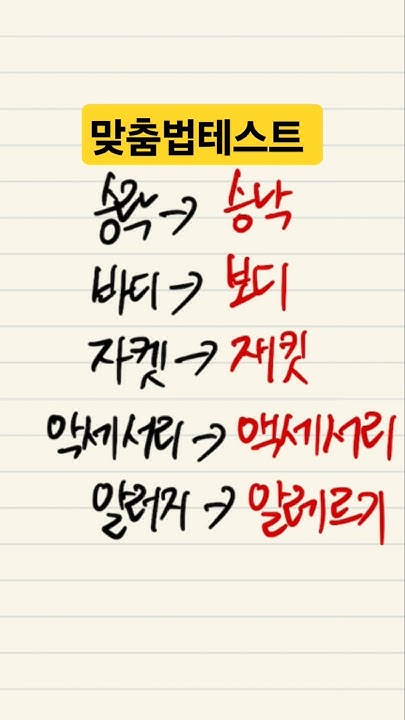 맞춤법테스트
승락→승낙
바디→보디
자켓→재킷
악세서리→액세서리
알러지→알레르기